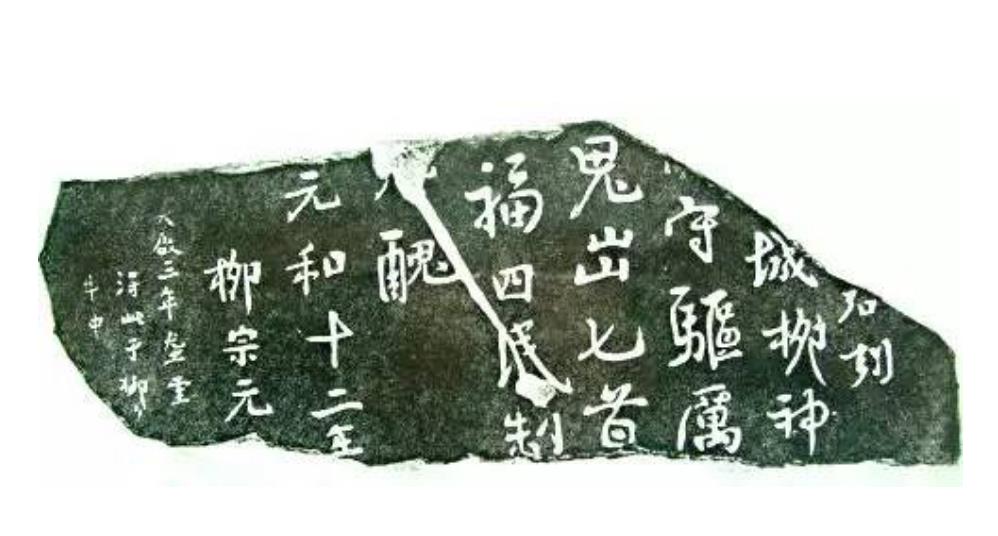 石刻
城柳神
守驅厲
鬼出匕首
福四民制
九醜
元和十二年
柳宗元
天啟三年龔重
得此于柳
井中